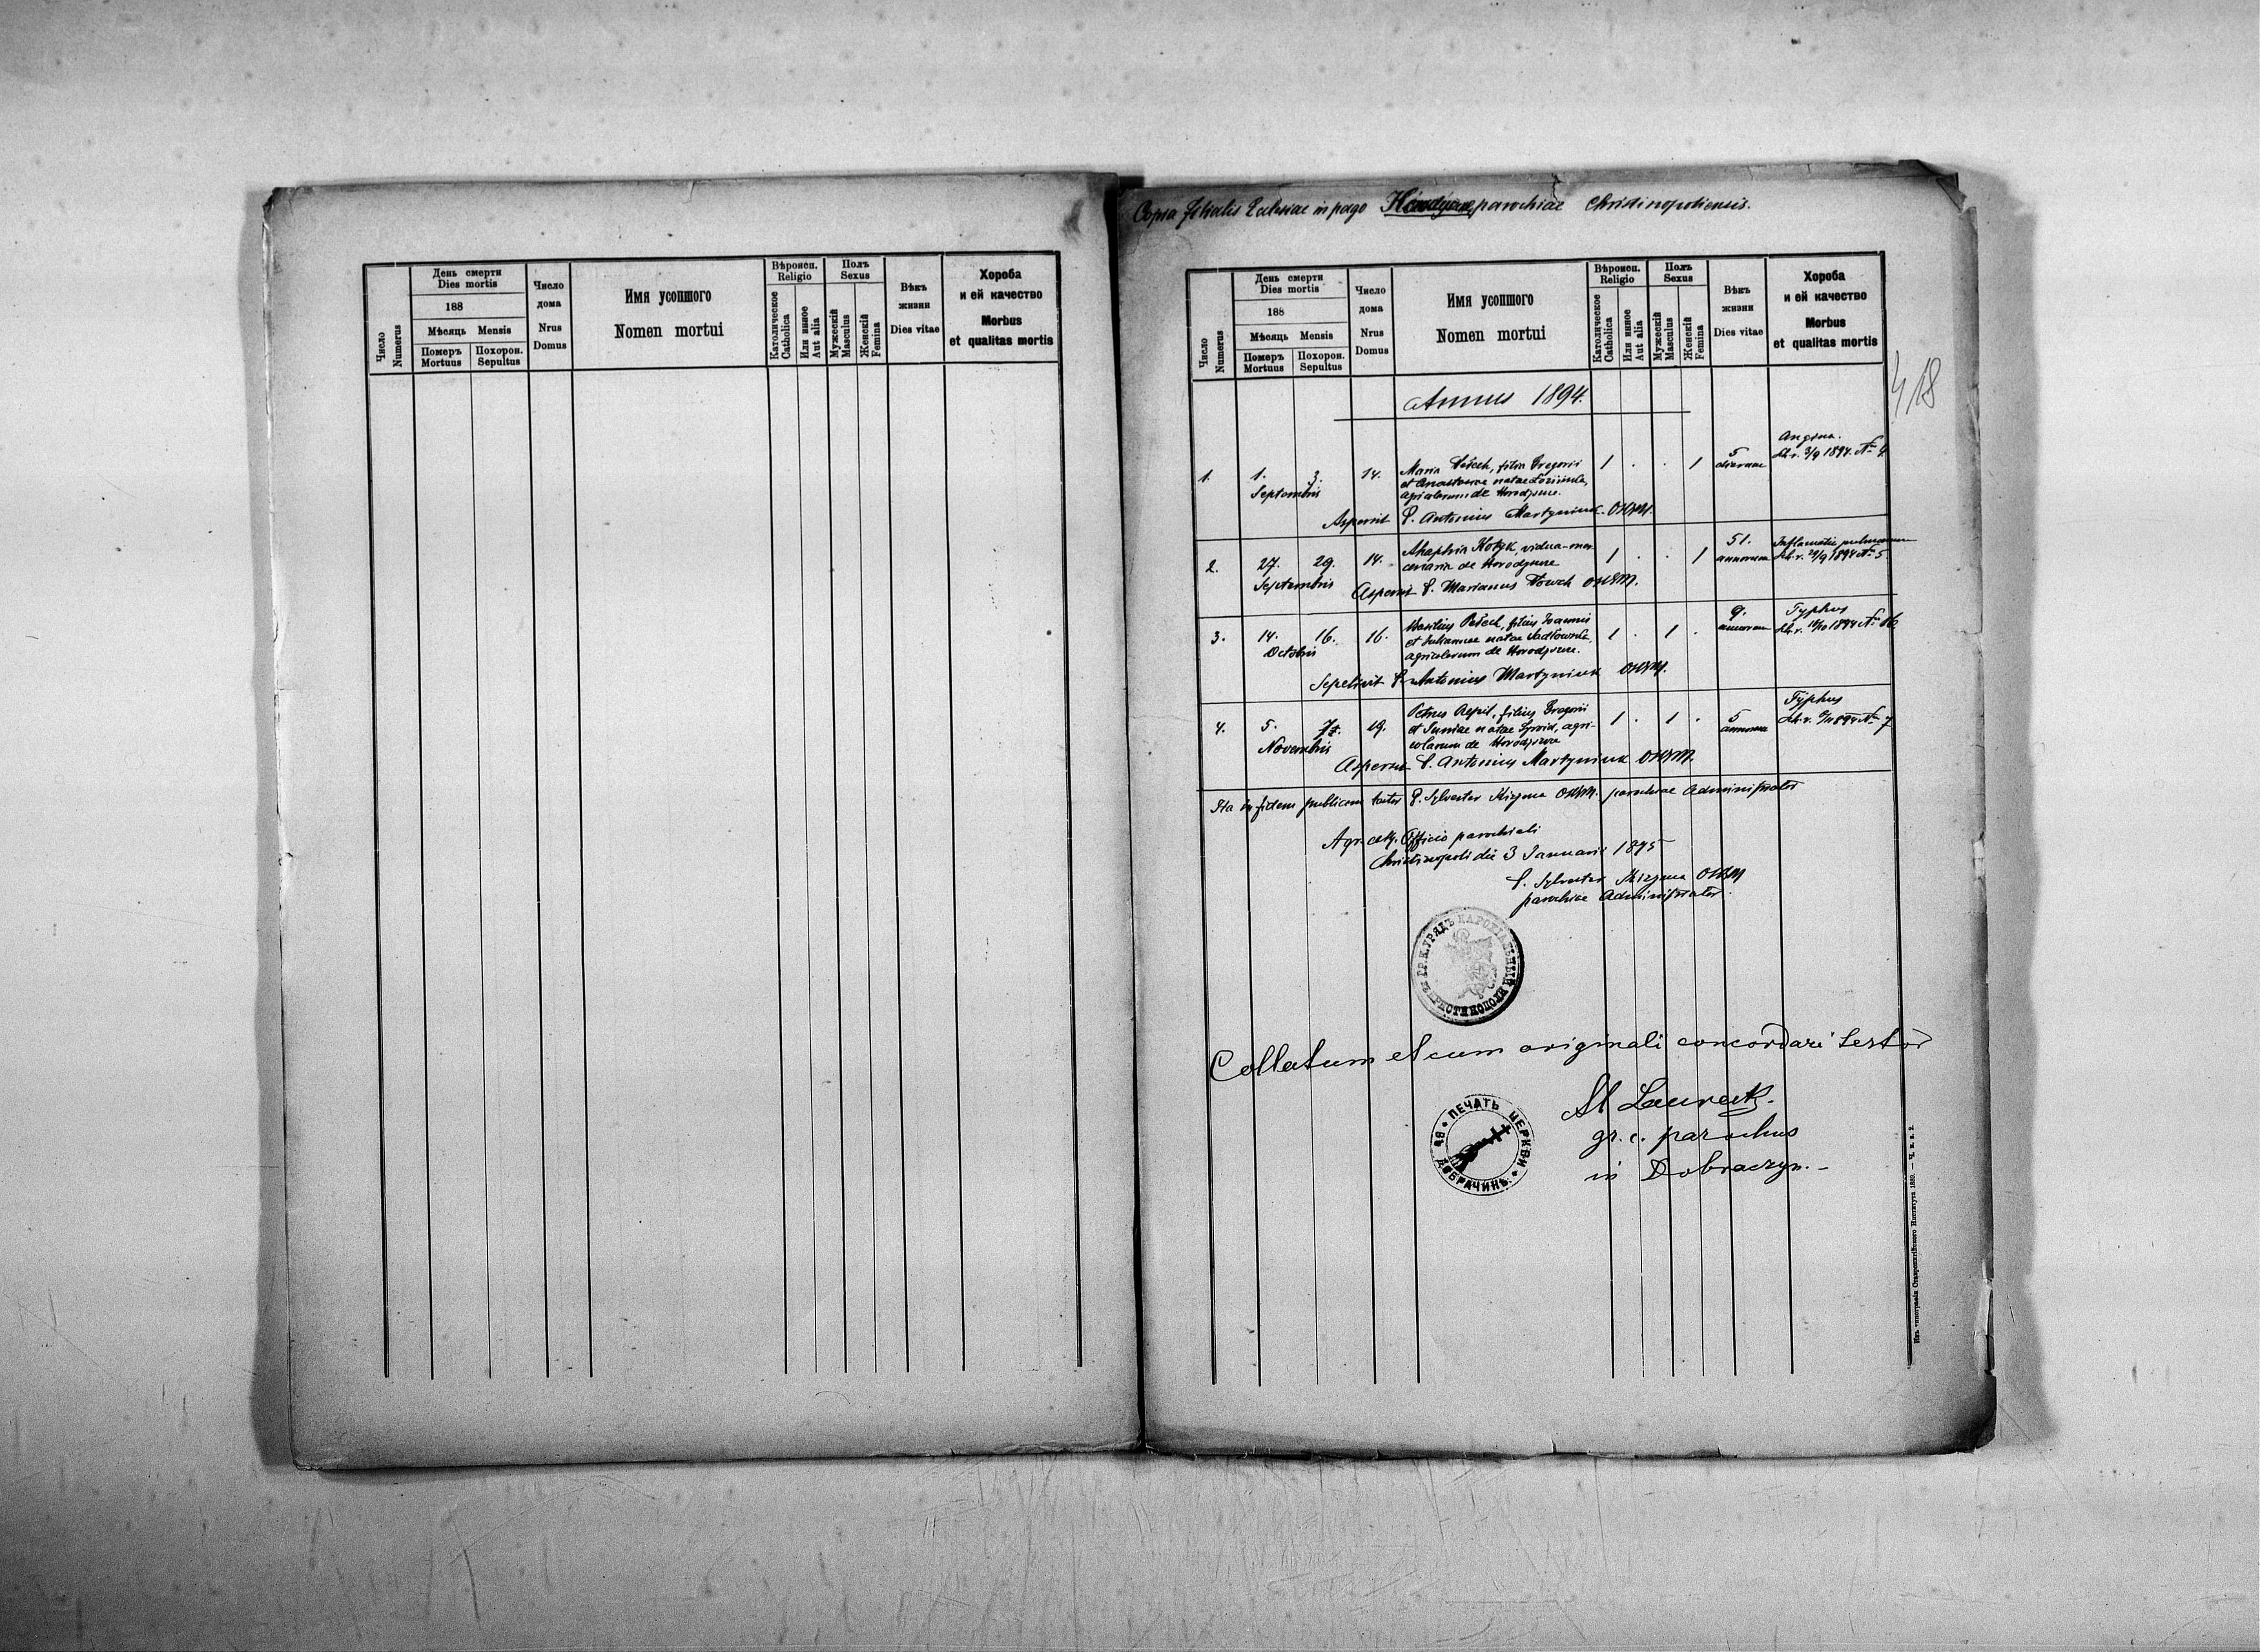 Число
Numerus
День смерти
Dies mortis
188
Мѣсяць Mensis
Померъ
Mortuus
Похорон.
Sepultus
Число
дома
Nrus
Domus
Имя усопшого
Nomen mortui
Вѣроисп.
Religio
Католическое
Catholica
Или иное
Aut alia
Полъ
Sexus
Мужескій
Masculus
Женскій
Femina
Вѣкъ
жизни
Dies vitae
Хороба
и ей качество
Morbus
et qualitas mortis
Copia filialis Ecclesiae in pago parochiae Christinopoliensis.
Число
Numerus
День смерти
Dies mortis
188
Мѣсяць Mensis
Померъ
Mortuus
Похорон.
Sepultus
Число
дома
Nrus
Domus
Имя усопшого
Nomen mortui
Вѣроисп.
Religio
Католическое
Catholica
Или иное
Aut alia
Полъ
Sexus
Мужескій
Masculus
Женскій
Femina
Вѣкъ
жизни
Dies vitae
Хороба
и ей качество
Morbus
et qualitas mortis
418
Annus 1894.
1. 1. 3. 14. Maria filia Gregorii 1 . . 1 5 Angina.
Septembris et natae dierum 3/9 1894. No 4.
agricolarum de
Aspersit P. Antonius Martyniuk. OSBM.
2. 27. 29. 14. Ahaphia Kotyk, vidua-mer- 1 . . 1 51. Inflamatio pulmonum
Septembris cenaria de annorum 29/9 1894 No 5.
Aspersit P. Marianus OSBM.
3. 14. 16. 16. Basilius filius Joannis 1 . 1 . 9. Typhus
Octobris et natae annorum 1894 No
agricolarum de
Sepelivit P. Antonius Martyniuk OSBM.
4. 5. 7. 19. Petrus filius Gregorii 1 . 1 . 5 Typhus
Novembris et natae agri- annorum 1894 No 7
colarum de
Aspersit P. Antonius Martyniuk OSBM.
Ita in fidem publicam testor P. Sylvester OSBM. parochiae Administrator
Officio parochiali
Christinopoli die 3 Januarii 1895
P. Sylvester OSBM
parochiae Administrator.
ГР.К.УРЯДЪ ПАРОХІАЛЬНЫЙ
Collatum et cum originali concordare testor
gr. c. parochus
in Dobraczyn.-
ПЕЧАТЬ ЦЕРКВИ ВЪ ДОБРАЧИНЪ.
Изъ типографіи Ставропигійского Института 1889. —